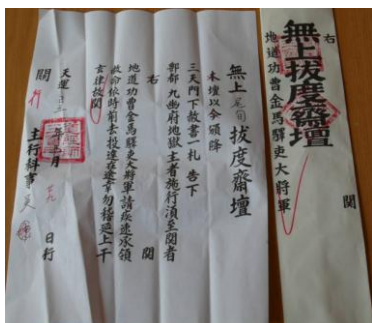 右 關
無上拔度齋壇
地道功曹金馬驛吏大將軍
無上 拔度齋壇
本壇以今頒降
三天門下赦書一札 告下
酆都九幽府地獄主者施行湏至關者
右 關
地道功曹金馬驛吏大將軍請疾速承領
故命依時前去投進在途幸勿稽延上干
玄律故關
天運 年 月 日行
關 行 主行科事